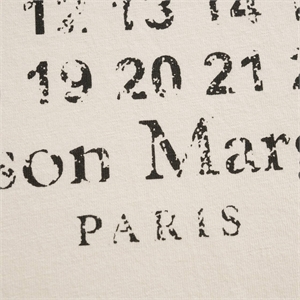 12 13 14
19 20 21 2
son Marg
PARIS